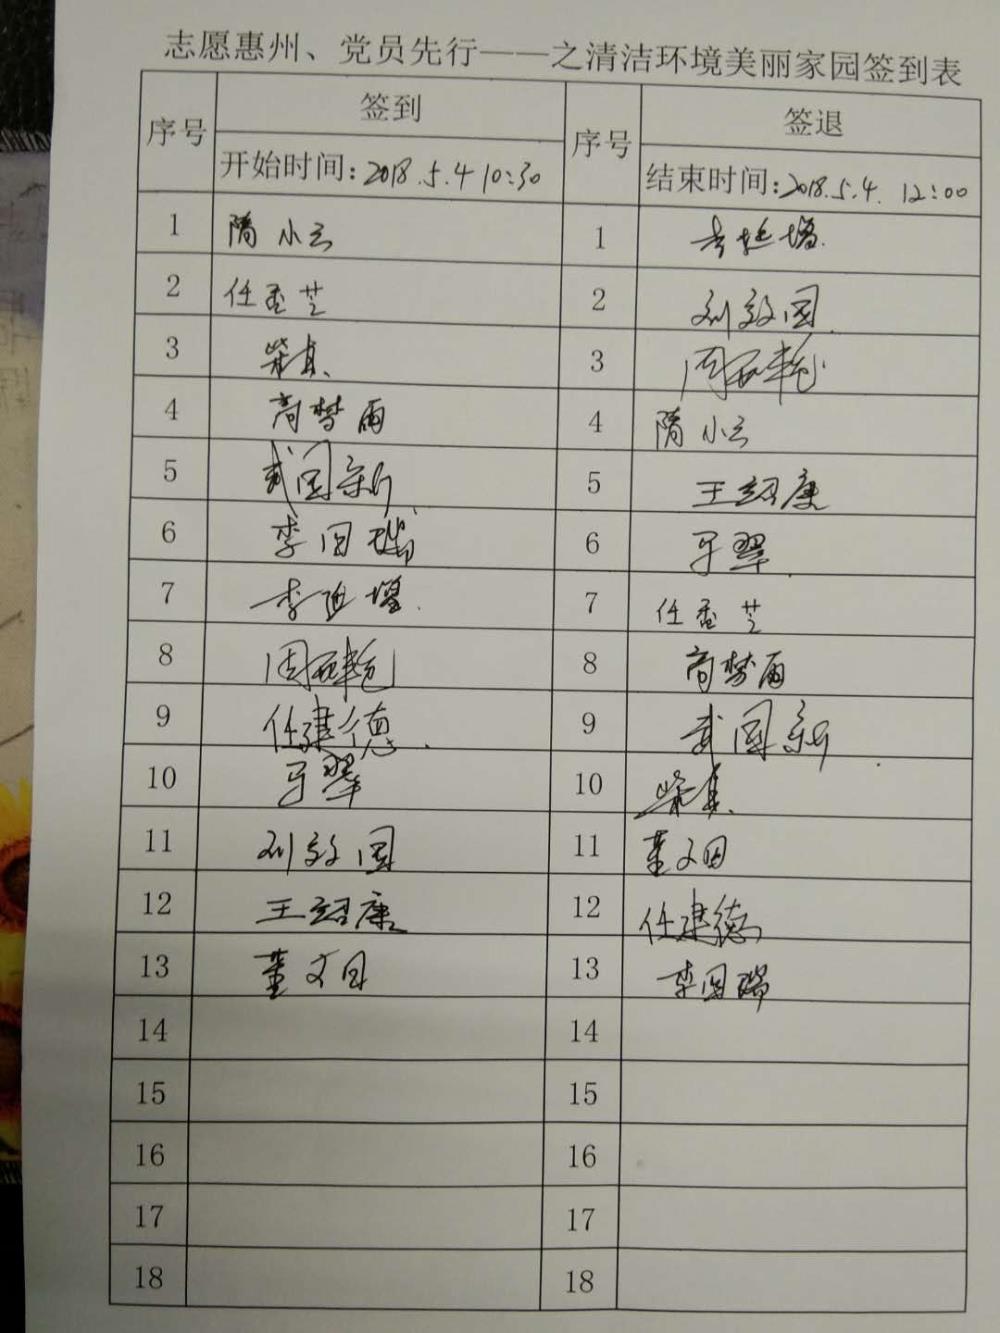 志愿惠州、党员先行——之清洁环境美丽家园签到表
序号 签到 序号 签退
开始时间:2018.5.4 10:30 结束时间:2018.5.4. 12:00
1 隋小云 1 李延增
2 任香芝 2 刘效国
3 柴真 3 周
4 商梦雨 4 隋小云
5 武国新 5 王绍康
6 李国瑞 6 牙翠
7 李延增 7 任香芝
8 周 8 商梦雨
9 任建德 9 武国新
10 牙翠 10 柴真
11 刘效国 11 董文国
12 王绍康 12 任建德
13 董文国 13 李国瑞
14 14
15 15
16 16
17 17
18 18